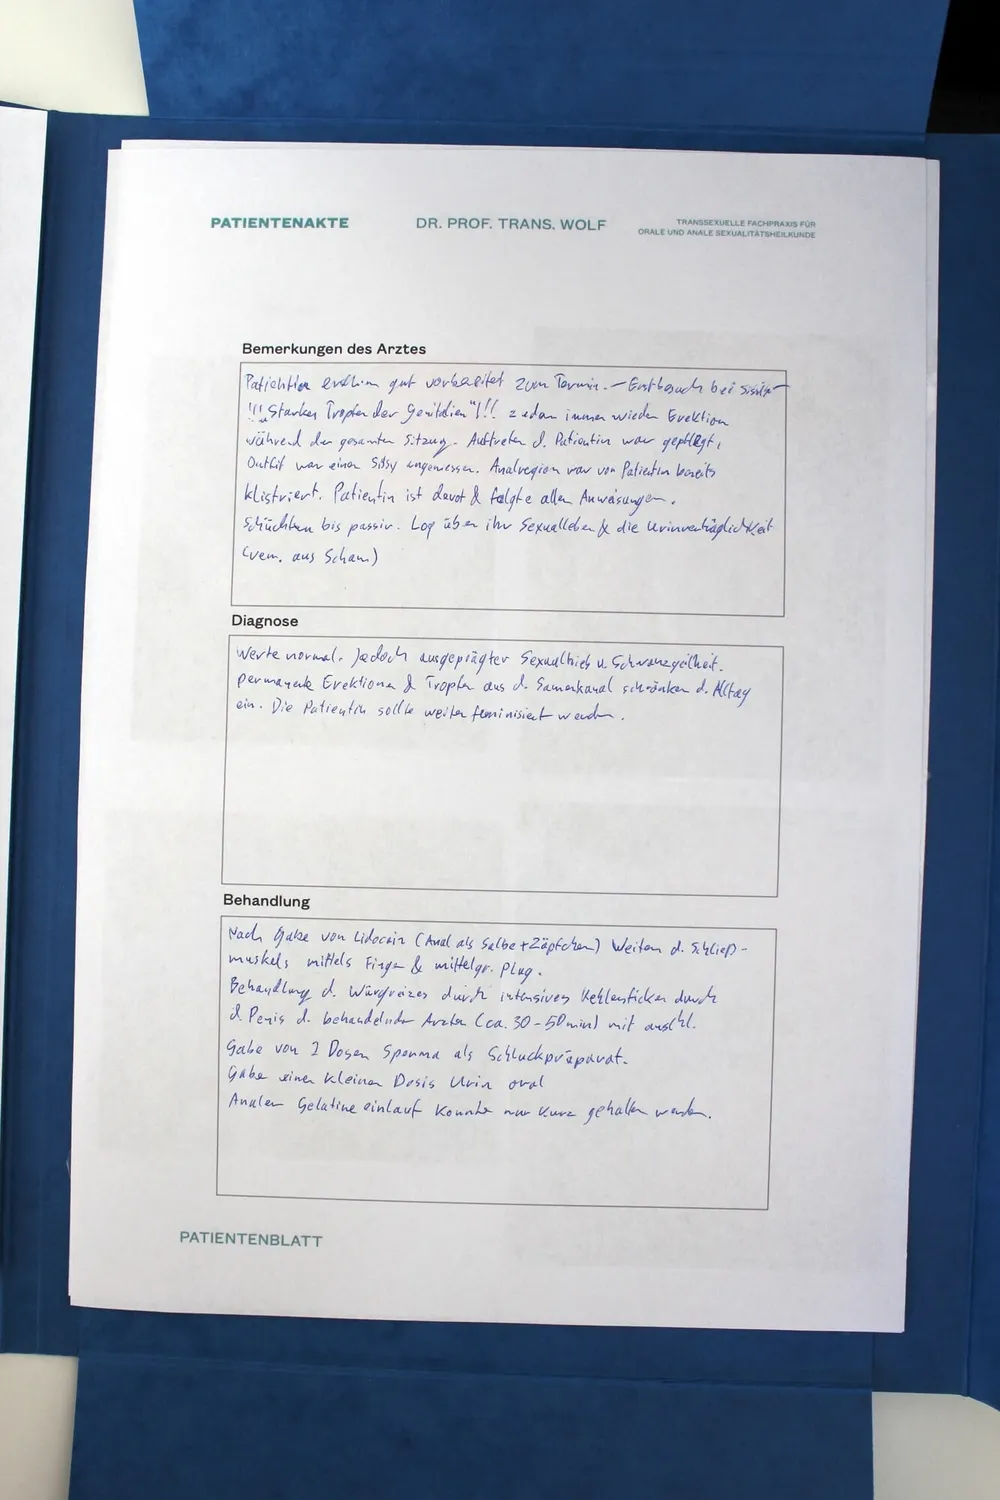 PATIENTENAKTE
DR. PROF. TRANS. WOLF
TRANSSEXUELLE FACHPRAXIS FÜR
ORALE UND ANALE SEXUALITÄTSHEILKUNDE
Bemerkungen des Arztes
Patientin erschien gut vorbereitet zum Termin. – Erstbesuch bei
!!! Starkes Tropfen der Genitalien"!!! zudem immer wieder Erektion
während der gesamten Sitzung. Auftreten d. Patientin war gepflegt,
Outfit war einer Sissy angemessen. Analregion war von Patientin bereits
klistriert. Patientin ist devot & folgte allen Anweisungen.
Schüchtern bis passiv. Log über ihr Sexualleben & die Urinverträglichkeit
(verm. aus Scham)
Diagnose
Werte normal. Jedoch ausgeprägter Sexualtrieb u. Schwanzgeilheit.
permanente Erektionen & Tropfen aus d. Samenkanal schränken d. Alltag
ein. Die Patientin sollte weiter feminisiert werden.
Behandlung
Nach Gabe von Lidocain (Anal als Salbe + Zäpfchen) Weiten d. Schließ-
muskels mittels Finger & mittelgr. Plug.
Behandlung d. Würgreizes durch intensives Kehlenficken durch
d. Penis d. behandelnden Arztes (ca. 30-50min) mit anschl.
Gabe von 2 Dosen Sperma als Schluckpräparat.
Gabe einer kleinen Dosis Urin oral
Analer Gelatineeinlauf konnte nur kurz gehalten werden.
PATIENTENBLATT